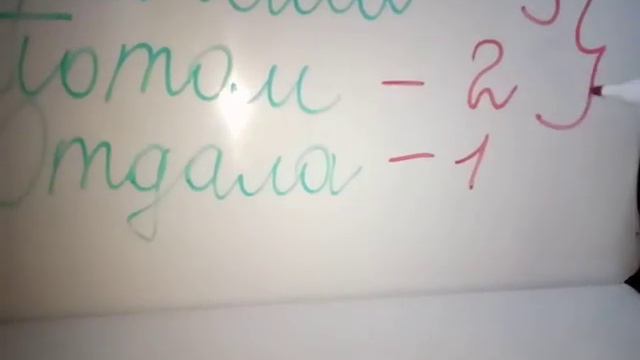 Потом - 2
Отдала - 1